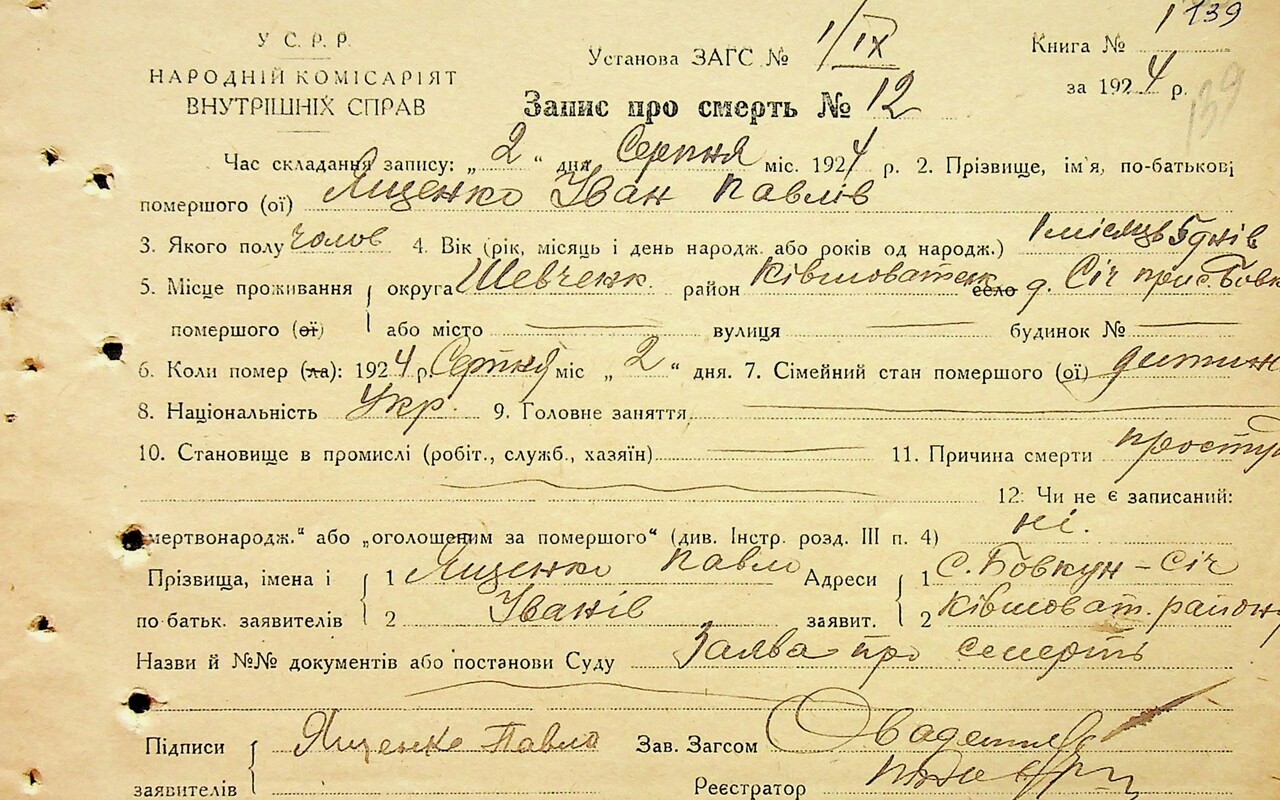 1 139
У С. Р. Р.
НАРОДНІЙ КОМІСАРІЯТ
ВНУТРІШНІХ СПРАВ
Установа ЗАГС № 1/IX
Книга №
за 1924 р.
139
Запис про смерть № 12
Час складання запису: „ 2 “ дня Серпня міс. 1924 р. 2. Прізвище, ім'я, по-батькові
помершого (ої) Ященко Іван Павлів
3. Якого полу чолов 4. Вік (рік, місяць і день народж. або років од народж.) 1 місяць 5 днів
5. Місце проживання округа Шевченк. район Ківшоватськ село д. Січ прис. Бовк
помершого (ої) або місто вулиця будинок №
6. Коли помер (ла): 1924 р. Серпня міс „ 2 “ дня. 7. Сімейний стан помершого (ої) дитин
8. Національність Укр. 9. Головне заняття
10. Становище в промислі (робіт., служб., хазяїн) 11. Причина смерти простуд
12. Чи не є записаний:
мертвонародж.“ або „оголошеним за помершого“ (див. Інстр. розд. III п. 4) ні.
Прізвища, імена і 1 Ященко Павло Адреси 1 С. Бовкун-Січ
по батьк. заявителів 2 Іванів заявит. 2 Ківшоват. району
Назви й №№ документів або постанови Суду Заява про смерть
Підписи Ященко Павло Зав. Загсом
заявителів Реєстратор